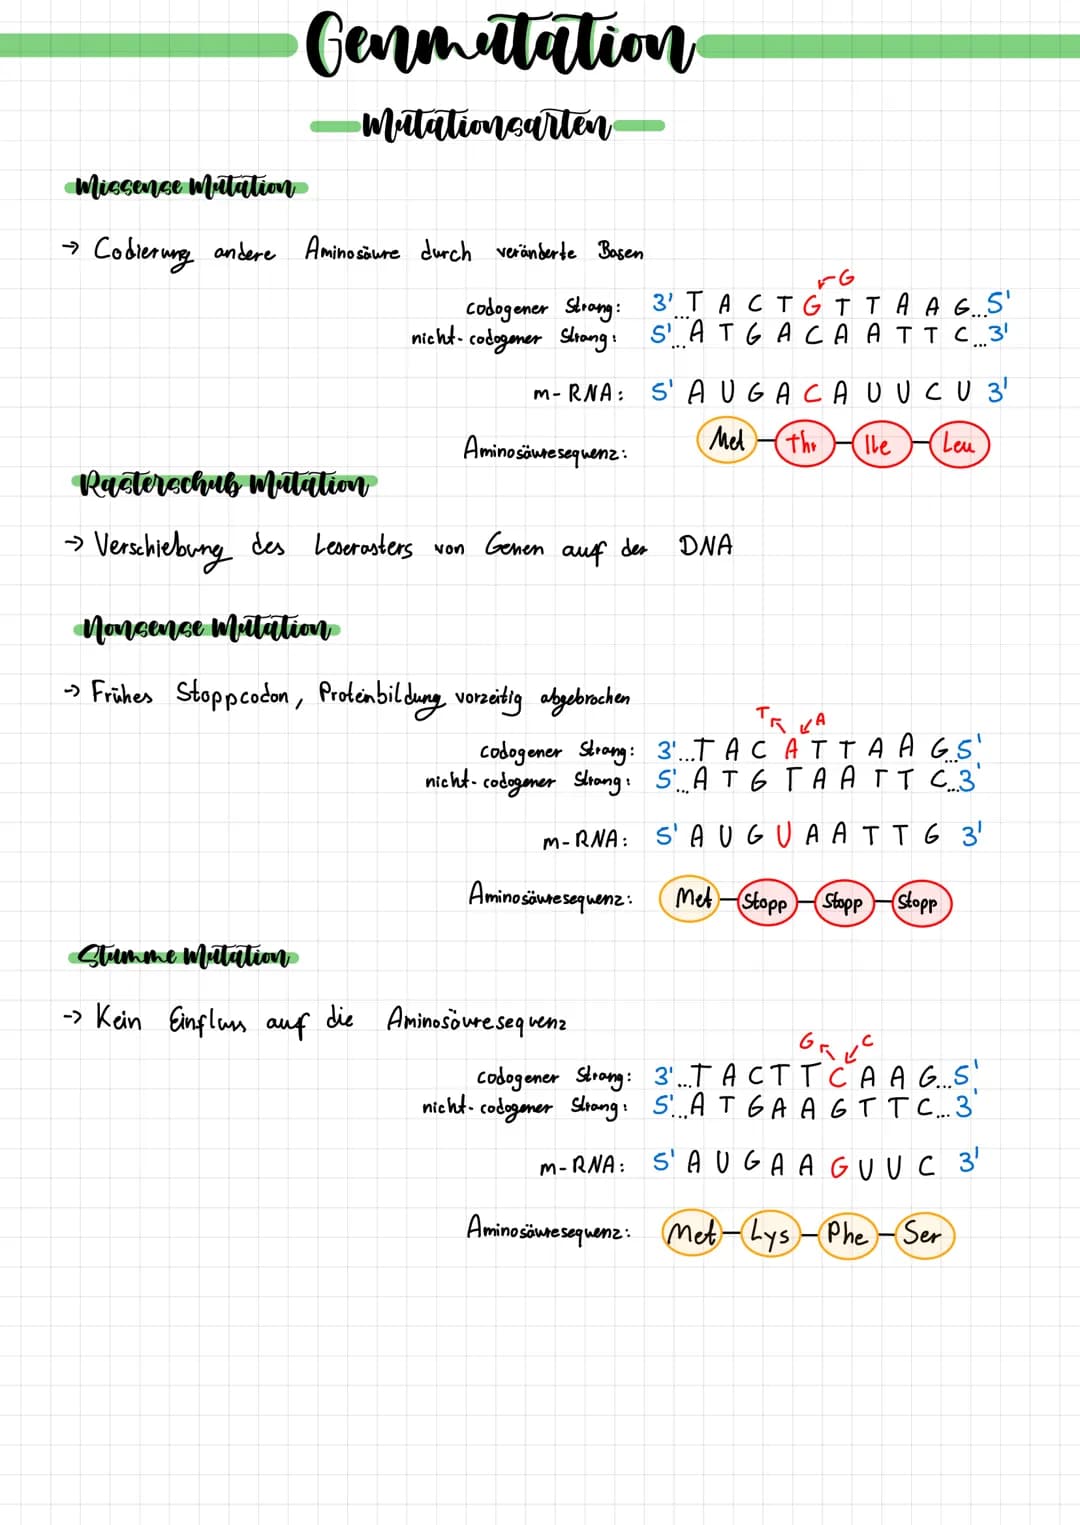 Genmutation
Mutationsarten
Missense Mutation
→ Codierung andere Aminosäure durch veränderte Basen
G
codogener Strang: 3'...T A C T G T T A A G...5'
nicht-codogener Strang: 5'...A T G A C A A T T C...3'
m-RNA: 5' A U G A C A U U C U 3'
Aminosäuresequenz: Met Thr Ile Leu
Rasterschub Mutation
→ Verschiebung des Leserasters von Genen auf der DNA
Nonsense Mutation
→ Frühes Stoppcodon, Proteinbildung vorzeitig abgebrochen
T A
codogener Strang: 3'...T A C A T T A A G...5'
nicht-codogener Strang: 5'...A T G T A A T T C...3'
m-RNA: 5' A U G U A A T T G 3'
Aminosäuresequenz: Met Stopp Stopp Stopp
Stumme Mutation
→ Kein Einfluss auf die Aminosäuresequenz
G C
codogener Strang: 3'...T A C T T C A A G...5'
nicht-codogener Strang: 5'...A T G A A G T T C...3'
m-RNA: 5' A U G A A G U U C 3'
Aminosäuresequenz: Met Lys Phe Ser